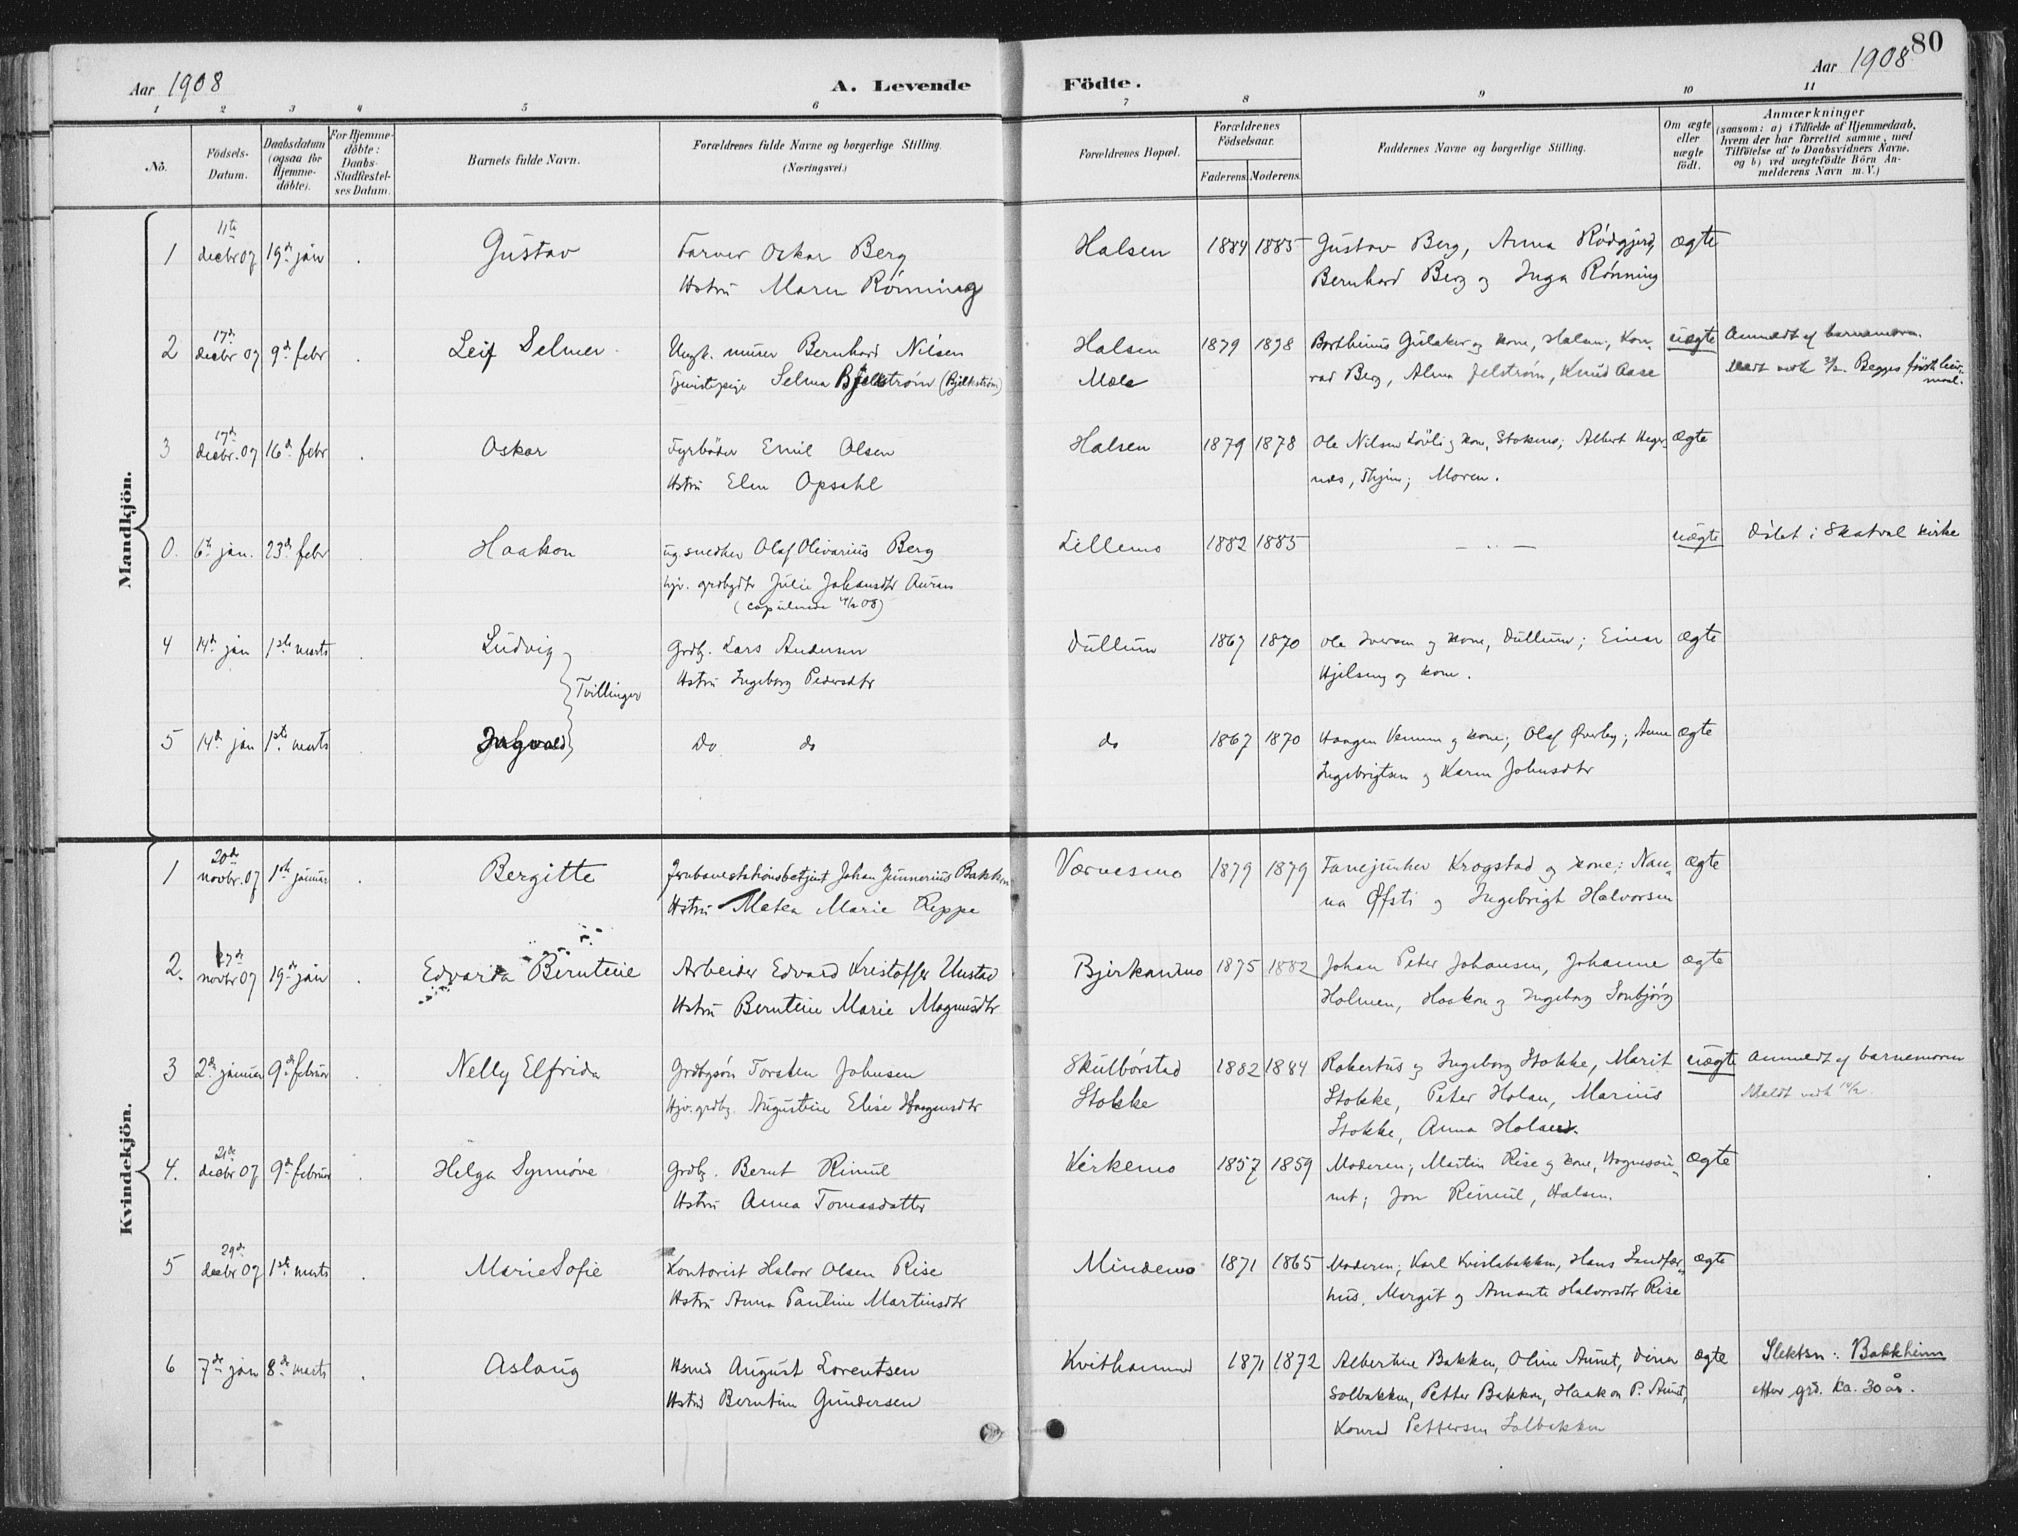 80
Aar 1908
A. Levende Födte.
Aar 1908
1 2 3 4 5 6 7 8 9 10 11
No.
Födsels-Datum.
Daabsdatum (ogsaa for Hjemme-døbte).
For Hjemme-döbte: Daabs-Stadfæstel-ses Datum.
Barnets fulde Navn.
Forældrenes fulde Navne og borgerlige Stilling.
(Næringsvei.)
Forældrenes Bopæl.
Forældrenes Födselsaar.
Faderens. Moderens.
Faddernes Navne og borgerlige Stilling.
Om ægte eller uægte født.
Anmærkninger
(saasom: a) i Tilfælde af Hjemmedaab,
hvem der har forrettet samme, med
Tilföielse af to Daabsvidners Navne,
og b) ved uægtefödte Börn An-
melderens Navn m. V.)
Mandkjön.
11te
1 decbr 07 19de jan Gustav Farver Oskar Berg Halsen 1884 1885 Gustav Berg, Anna Rødgjerd, ægte
Hstru Maren Rønning Bernhard Berg og Inga Rønning
17de
2 decbr 07 9de febr Leif Selmer Ungk. murer Bernhard Nilsen Halsen 1879 1878 og kone, Halsen, Kon- uægte Anmeldt af barnemoren
Selma (Bjelkstrøm) Mæle rad Berg, Alma Jelstrøm, Knud Aase Begges første leier-
maal.
17de
3 decbr. 07 16de febr Oskar Fyrbøder Emil Olsen Halsen 1879 1878 Ole Nilsen og kone, Stokmo; Albert Heger- ægte
Hstru Elen Opsahl næs, Moren.
0. 6te jan. 23de febr Haakon ug. snedker Olaf Olivarius Berg Lillemo 1882 1885 — „ — uægte Døbt i Skatval kirke
hjv. grdbrgdtr Julie Johansdtr Auran
4 14de jan 1ste marts Ludvig Grdbr. Lars Andersen Dullum 1867 1870 Ole Iversen og kone, Dullum; Einar ægte
Tvillinger
Hstru Ingeborg Pedersdtr Hjelseng og kone.
5 14de jan 1ste marts Ingvald Do do do 1867 1870 Haagen og kone; Olaf Øverby; Anne ægte
Ingebrigtsen og Karen Johnsdtr
Kvindekjön.
20de
1 novbr. 07 1ste januar Bergitte Jernbanestationsbetjent Johan Gunnerius Bakken Værnesmo 1879 1879 Fanejunker Krogstad og kone; Nan- ægte
Hstru Metea Marie Reppe na Øfsti og Ingebrigt Halvorsen
2. novbr 07 19de jan Edvarda Berntine Arbeider Edvard Kristoffer Unstad 1875 1882 Johan Peter Johansen, Johanne ægte
Hstru Berntine Marie Magnusdtr Holmen, Haakon og Ingeborg
3 2den januar 9de februar Nelly Elfrida Grdbrsøn Torsten Johnsen Skulbørstad 1882 1884 Robertus og Ingeborg Stokke, Marit uægte Anmeldt af barnemoren
Hjv. grdbr. Augustine Elise Haagensdtr Stokke Stokke, Peter Holan, Marius
Stokke, Anna Holan.
21de
4. decbr 07 9de februar Helga Synnøve Grdbr. Bernt Rimul Kirkemo 1857 1859 Moderen; Martin Rise og kone, ægte
Hstru Anna Tomasdatter Jon Rimul, Halsen.
29de
5 decbr 07 1ste marts Marie Sofie Kontorist Halvor Olsen Rise Mindemo 1871 1865 Moderen; Karl Kvislabakken, Hans Sandfær- ægte
Hstru Anna Pauline Martinsdtr hus, Margit og Amanta Halvorsdtr Rise
6 7de jan 8de marts Aslaug Hsmd August Lorentsen Kvithammer 1871 1872 Albertine Bakken, Oline Aunet, Dina ægte Slektsn: Bakkheim
Hstru Berntine Gundersen Solbakken, Petter Bakken, Haakon P. Aunet, etter grd. ka. 30 år.
Konrad Pettersen Solbakken